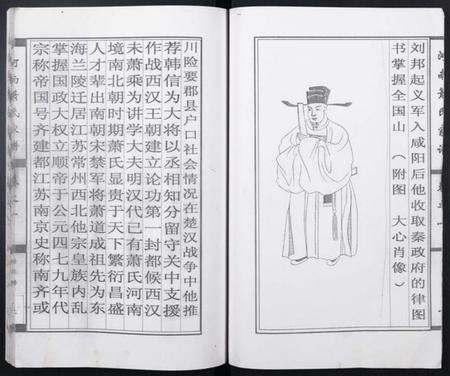 刘邦起义军入咸阳后他收取秦政府的律图
书掌握全国山 （附图 大心肖像）
川险要郡县户口社会情况在楚汉战争中他推
荐韩信为大将以丞相知分留守关中支援
作战西汉王朝建立论功第一封都候西汉
未萧乘为讲学大夫明汉代已有萧氏河南
境南北朝时期萧氏显贵于天下繁衍昌盛
人才辈出南朝宋禁军将萧道成祖先为东
海兰陵迁居江苏常州西北他宗皇族内乱
掌握国政大权立顺帝于公元四七九年代
宗称帝国号齐建都江苏南京史称南齐或